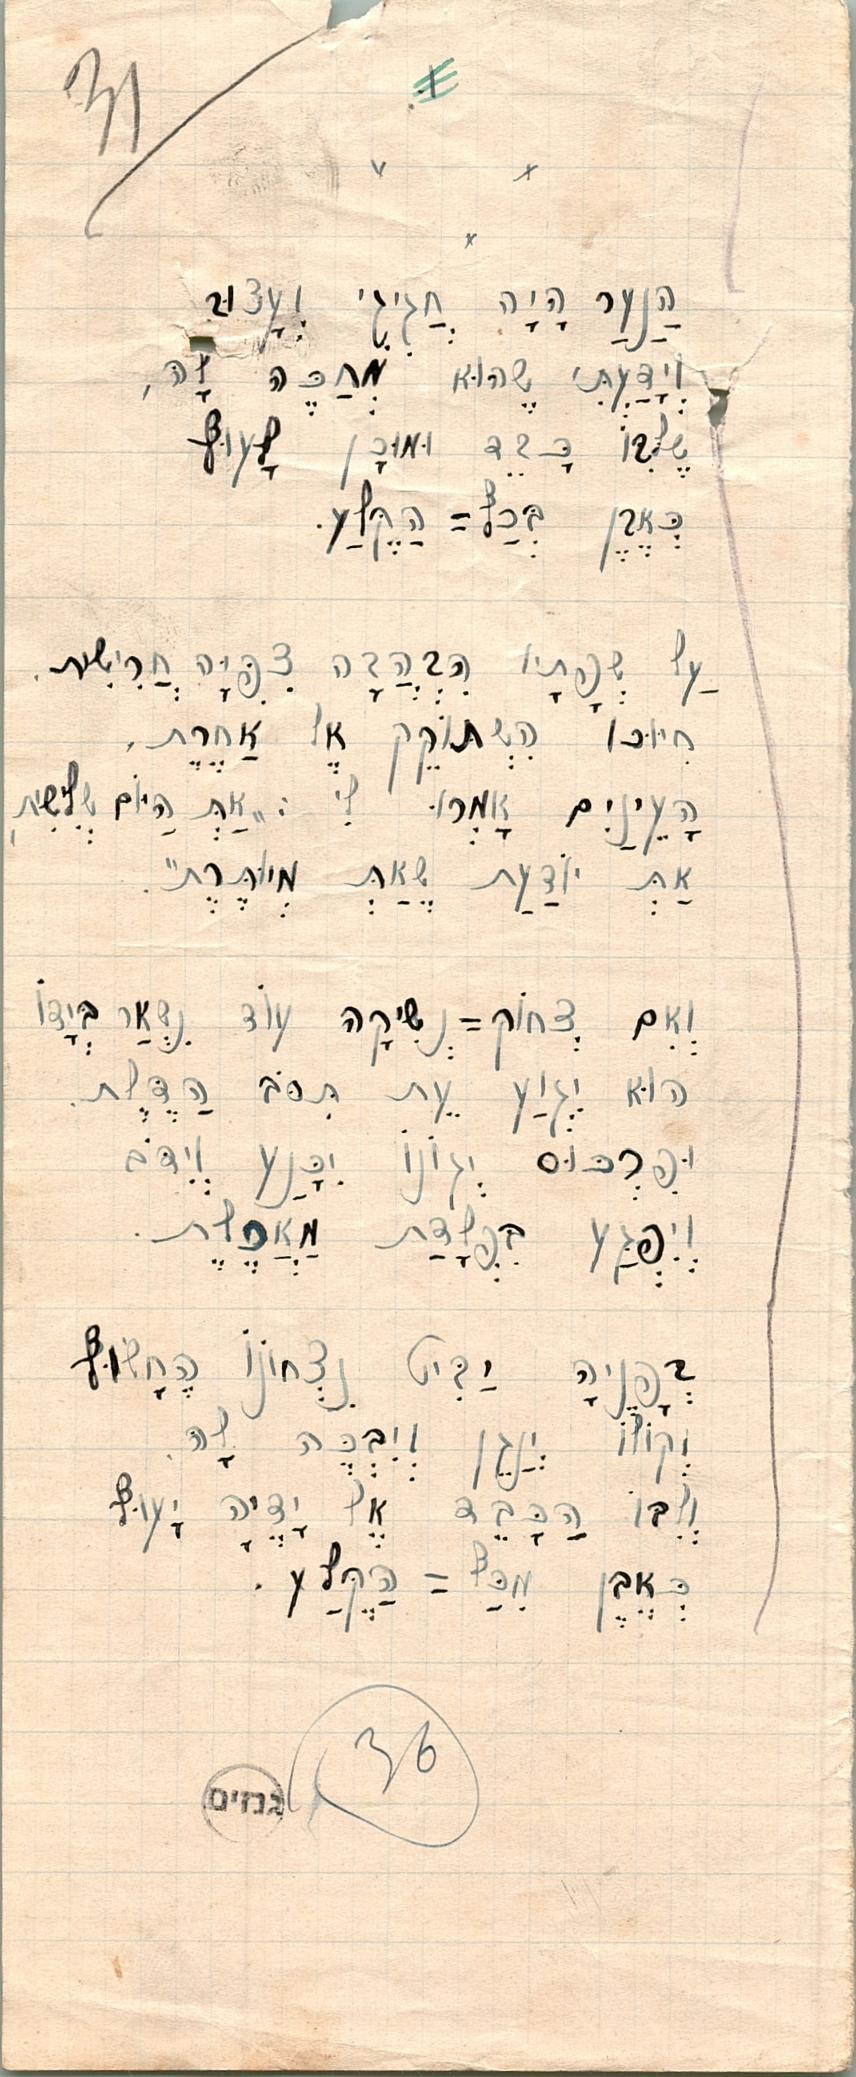 31
הַנַּעַר הָיָה חֲגִיגִי וְעָצוּב
וְיָדַעְתִּי שֶׁהוּא מְחַכֶּה לָהּ,
שֶׁלִּבּוֹ כָּבֵד וּמוּכָן לָעוּף
כְּאֶבֶן בְּכַף=הַקֶּלַע.
עַל שְׂפָתָיו הִבְהֲבָה צִפִּיָּה חֲרִישִׁית.
חִיּוּכוֹ הִשְׁתּוֹקֵק אֶל אַחֶרֶת,
הָעֵינַיִם אָמְרוּ לִי: "אַתְּ הַיּוֹם שְׁלִישִׁית,
אַתְּ יוֹדַעַת שֶׁאַתְּ מְיֻתֶּרֶת".
וְאִם צְחוֹק=נְשִׁיקָה עוֹד נִשְׁאַר בְּיָדוֹ
הוּא יִגְוַע עֵת תִּסֹּב הַדֶּלֶת.
וּפִרְכּוּס יְגוֹנוֹ יִכָּנַע וְיִדֹּב
וְיִפְגַּע בְּפִלְדַּת מַאֲכֶלֶת.
בְּפָנֶיהָ יַבִּיט נִצְחוֹנוֹ הֶחָשׂוּף
וְקוֹלוֹ יְנַגֵּן וְיִבְכֶּה לָהּ.
וְלִבּוֹ הַכָּבֵד אֶל יָדֶיהָ יָעוּף
כְּאֶבֶן מִכַּף=הַקֶּלַע.
36
גנזים